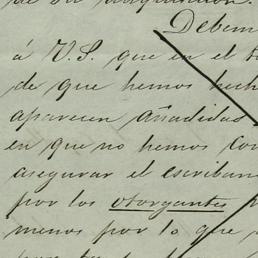 Debem
á V.S. que en el
de que hemos hech
aparecen añadidas
en que no hemos con
asegurar el escriban
por los otorgantes
menos por lo que